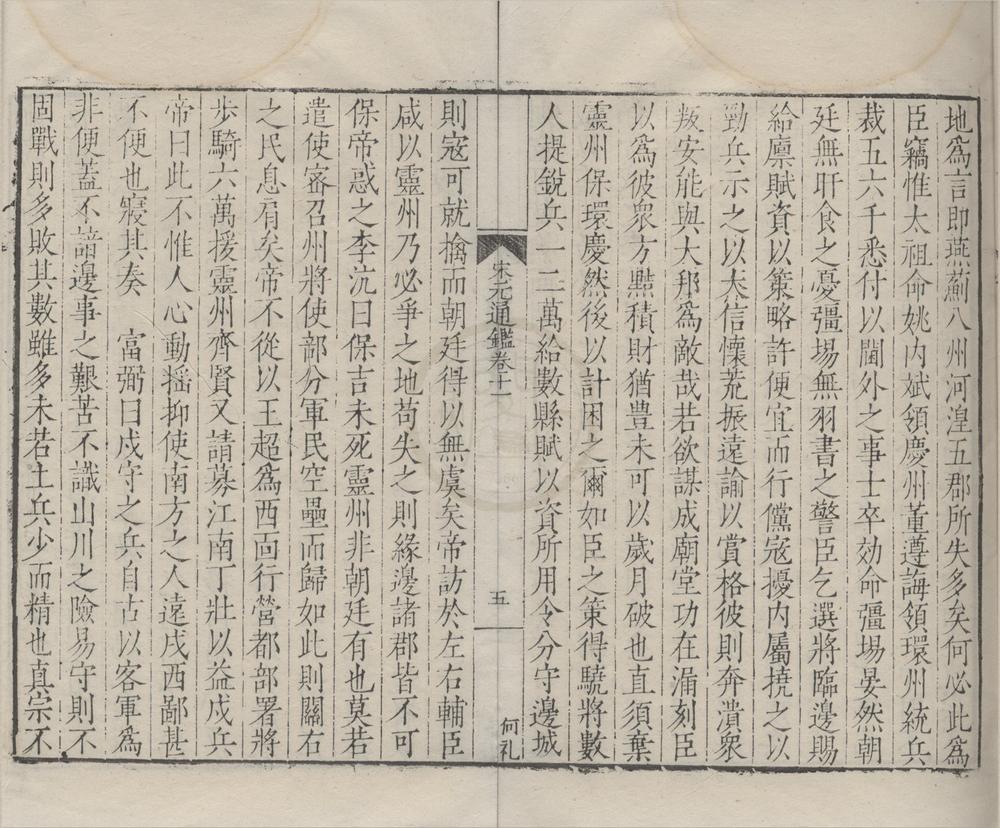 地爲言即燕薊八州河湟五郡所失多矣何必此爲
臣竊惟太祖命姚内斌領慶州董遵誨領環州統兵
裁五六千悉付以閫外之事士卒効命彊場晏然朝
廷無旰食之憂彊場無羽書之警臣乞選將臨邊賜
給廪賦資以策略許便宜而行儻寇擾内屬撓之以
勁兵示之以大信懷荒振遠諭以賞格彼則奔潰衆
叛安能與大邦爲敵哉若欲謀成廟堂功在漏刻臣
以爲彼衆方黠積財猶豊未可以歲月破也直須棄
靈州保環慶然後以計困之爾如臣之策得驍將數
人提銳兵一二萬給數縣賦以資所用令分守邊城
宋元通鑑卷十一
五
何礼
則寇可就擒而朝廷得以無虞矣帝訪於左右輔臣
咸以靈州乃必爭之地苟失之則緣邊諸郡皆不可
保帝惑之李沆曰保吉未死靈州非朝廷有也莫若
遣使密召州將使部分軍民空壘而歸如此則關右
之民息肩矣帝不從以王超爲西面行營都部署將
步騎六萬援靈州齊賢又請募江南丁壯以益戍兵
帝曰此不惟人心動摇抑使南方之人遠戍西鄙甚
不便也寢其奏　富弼曰戍守之兵自古以客軍爲
非便蓋不諳邊事之艱苦不識山川之險易守則不
固戰則多敗其數雖多未若土兵少而精也真宗不